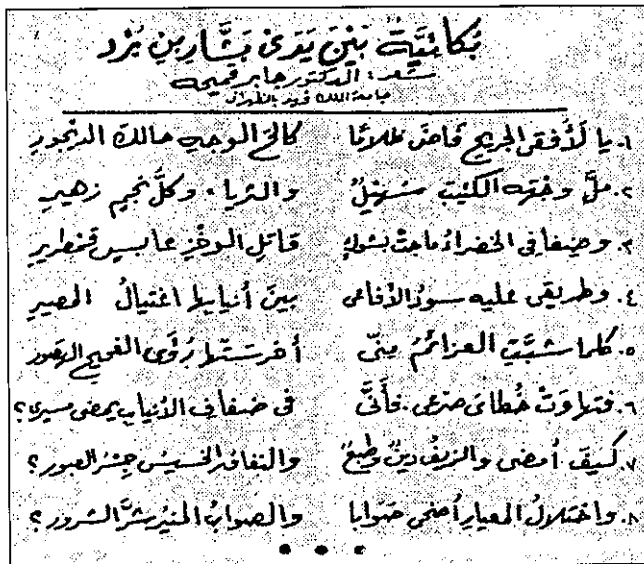 بُكائيَّة بَيْنَ يَدَىْ بَشَّار بن بُرْد
شعر: الدكتور جابر قميحه
جامعة الملك فهد بالظهران
١. يا لَأُفقى الجريحِ فاضَ ظلامًا كالحَ الوجهِ حالكَ الديجورِ
٢. ملَّ وجْهه الكئيبَ سُهَيْلٌ والثريا. وكلُّ نجمٍ زهيرِ
٣. وضِفافى الخضراءُ ماجتْ بشوكٍ قاتلِ الوخْزِ عابسٍ قمطريرِ
٤. وطريقى عليه سودُ الأفاعى بينَ أنيابها اغتيالُ المصيرِ
٥. كلما شبَّتِ العزائمُ منّى أخرسَتْها رُؤَى الفحيحِ الهَصور
٦. فتهاوَتْ خُطاىَ صرْعى. فأنَّى فى ضفافِ الأنيابِ يمضى مسيرى؟
٧. كيفَ أمضى والزيفُ دينٌ وطبعٌ والنفاقُ الخسيسُ جِسْرُ العبورِ؟
٨. واختلالُ المعيارِ أضحى صَوابا والصوابُ المنيرُ شرَّ الشرورِ؟